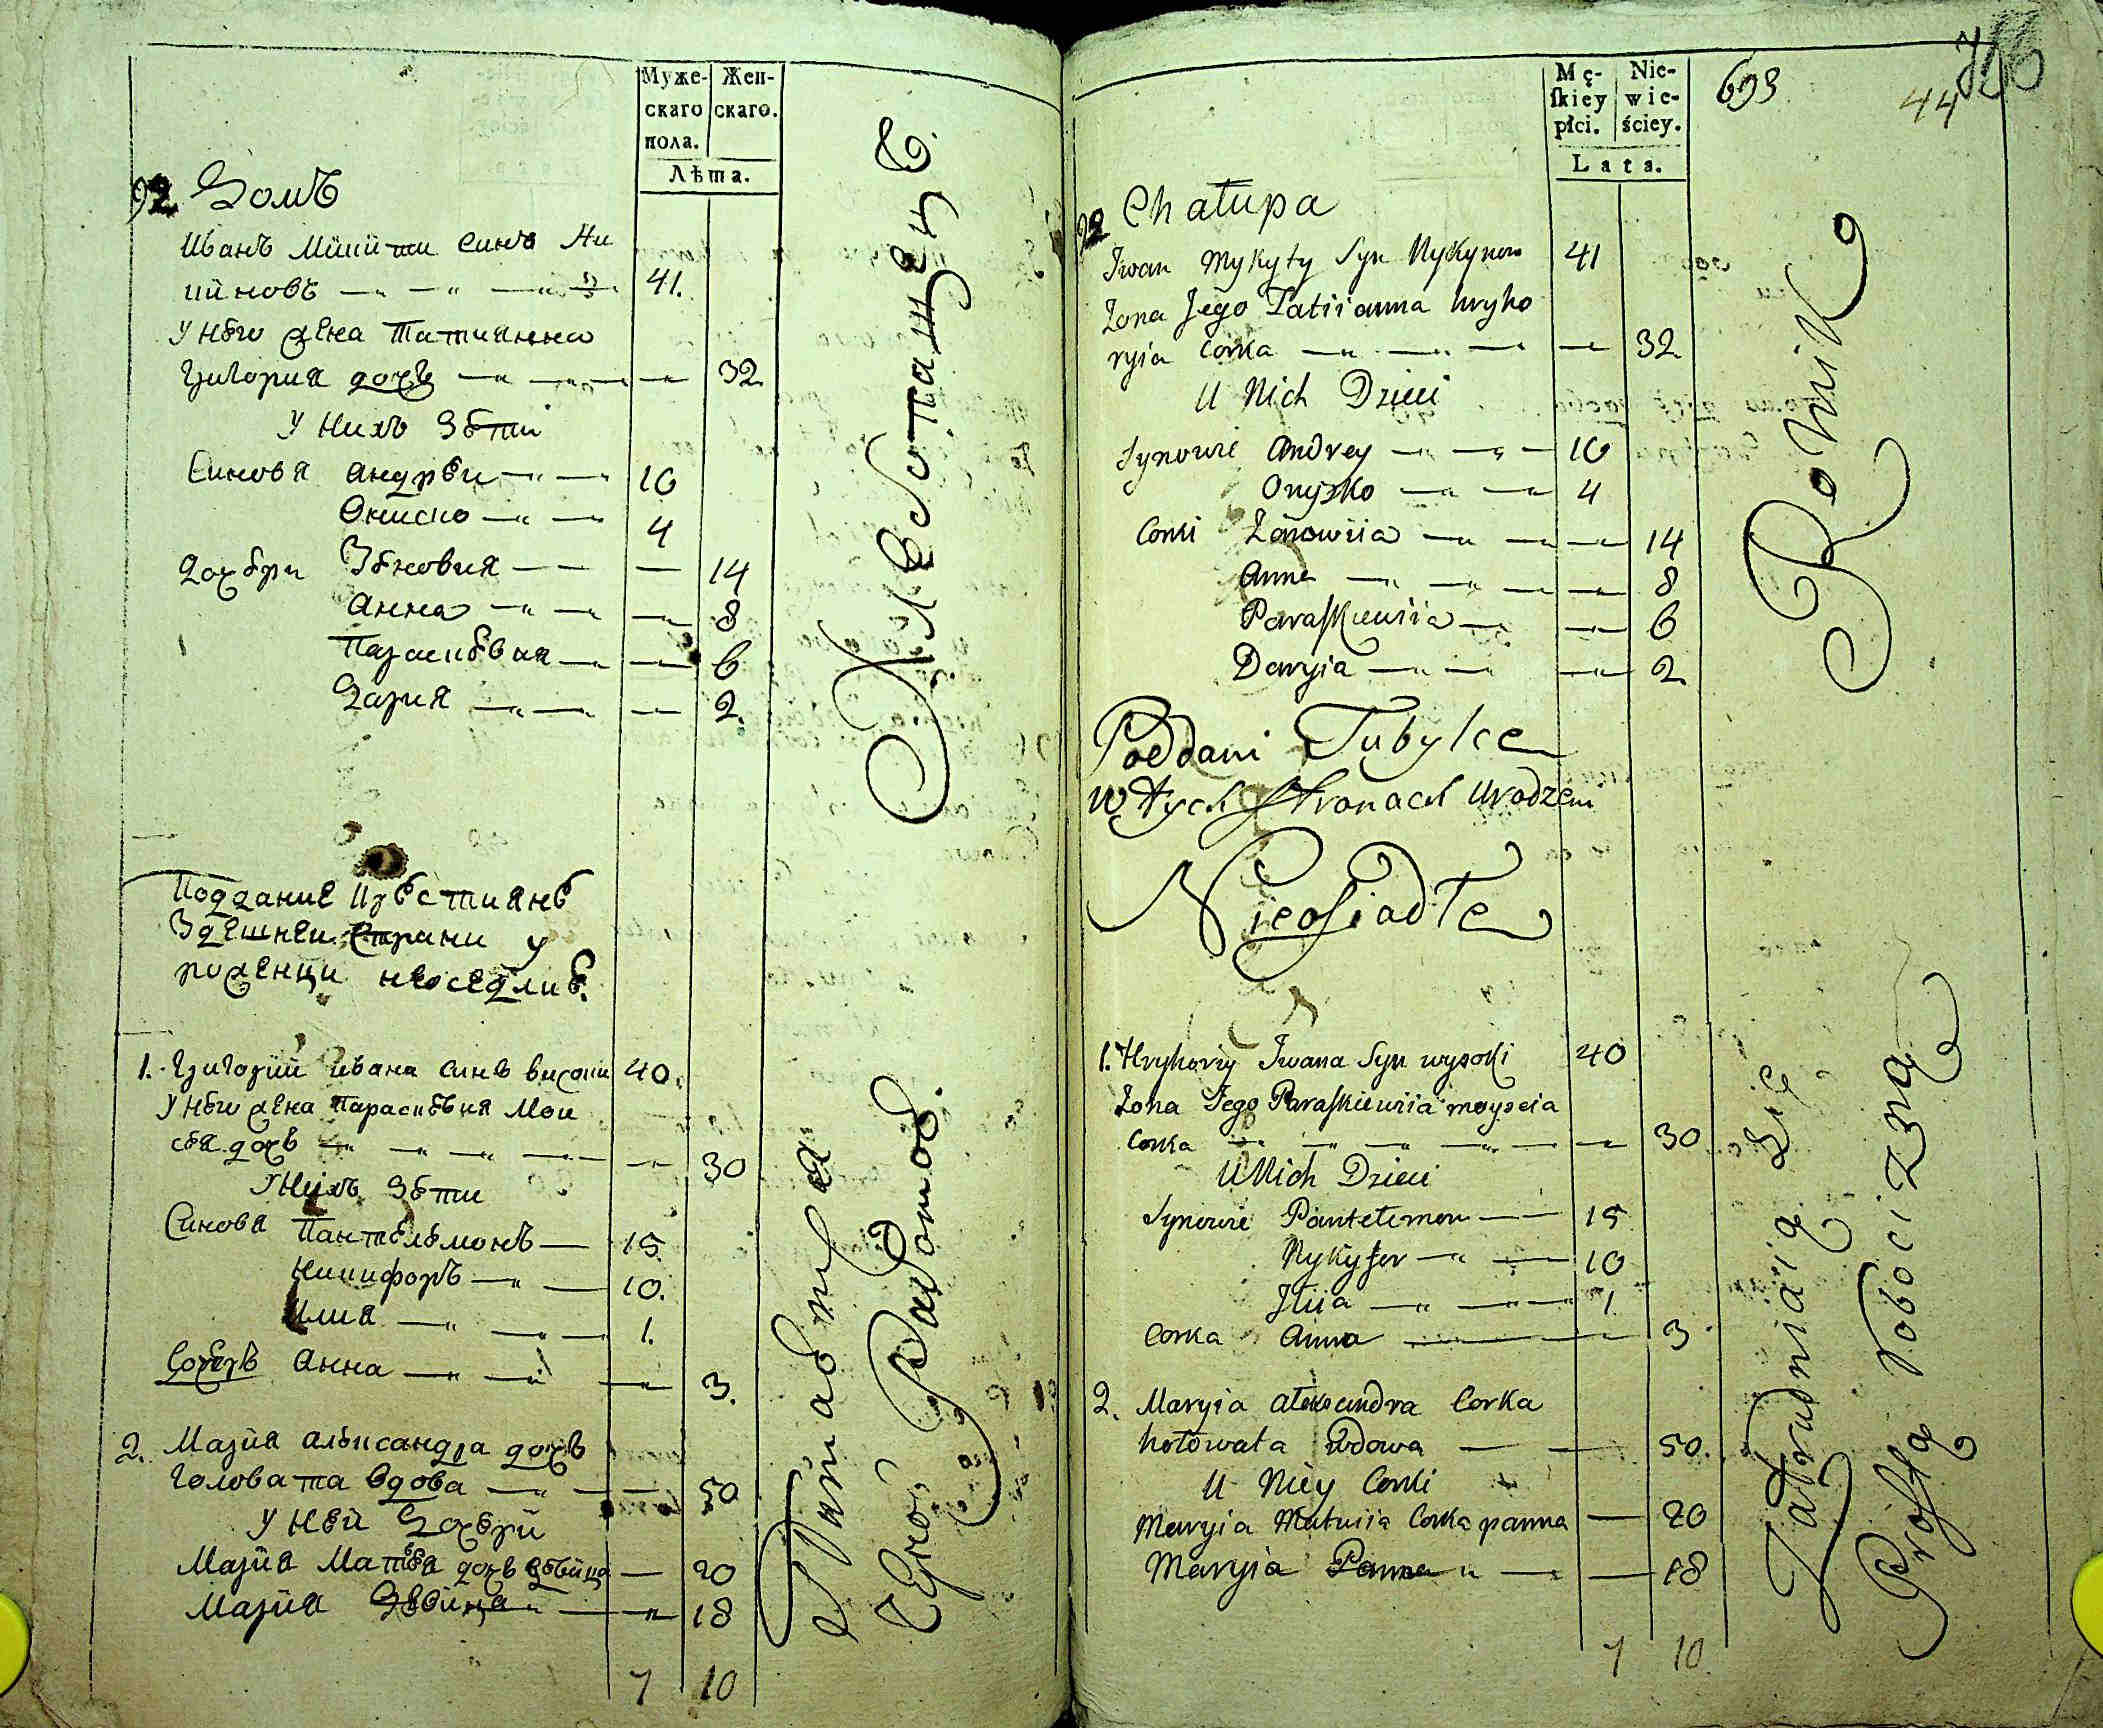 Муже-
скаго
пола.
Жен-
скаго.
Лѣта.
92 Домъ
Иванъ Микити синъ Ни
кйновъ 41.
У нѣго жена Татианна
Григория дочь 32.
У нихъ Дѣти
Синовя Андрѣи 10
Ониско 4
Дочѣри Зѣновия 14
Анна 8
Параскѣвия 6
Дария 2.
Хлѣбопашецъ.
Подданиє Крѣстиянѣ
Здєшнєи Страни у
роженци неоседлиѣ.
1. Григорий Ивана синъ високи 40.
У нѣго жена Параскѣвия Мои
сѣя дочь 30
У Нихъ Дѣти
Синовя Пантѣлѣмонъ 15.
Никифоръ 10.
Илия 1.
Дочѣрь Анна 3.
2. Мария Алѣксандра дочь
Головата Вдова 50
У нѣй Дочѣрй
Мария Матвѣя дочь дѣвица 20
Мария Дѣвица 18
7 10
Черной Работой.
Mę-
skiey
płci.
Nie-
wie-
ściey.
Lata.
693
44
92 Chałupa
Iwan Mykyty Syn Nykynow 41
Zona Jego Tatiianna hryho
ryia Corka 32.
U Nich Dzieci
Synowie Andrey 10
Onysko 4
Corki Zonowiia 14
Anna 8
Paraskiewiia 6
Daryia 2.
Rolnik
Poddani Tubylce
w tych Stronach Urodzeni
Nieosiadłe
1. Hryhoriy Iwana Syn wysoki 40
Zona Jego Paraskiewiia moyseia
Corka 30
U Nich Dzieci
Synowie Pantelemon 15
Nykyfor 10
Iliia 1.
Corka Anna 3.
2. Maryia Alexandra Corka
hołowata Wdowa 50.
U Niey Corki
Maryia Matwiia Corka panna 20
Maryia Panna 18
7 10
Zatrudniaią się
Prostą Robocizną